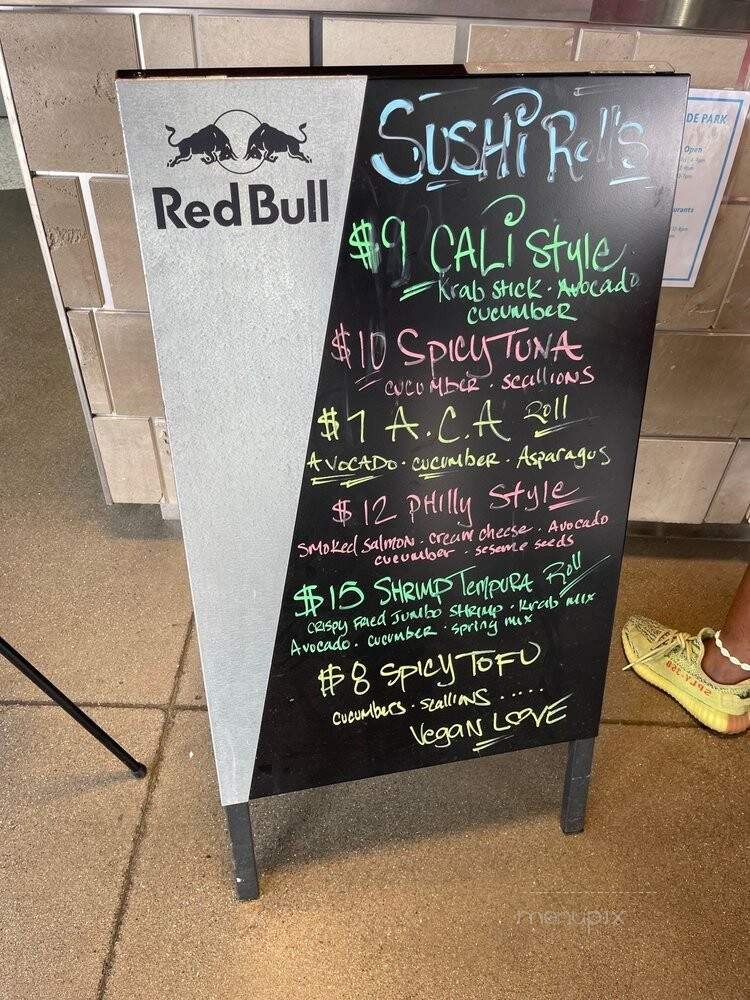 Red Bull
SUSHi Roll's
$9 CALi Style
Krab Stick · Avocado
cucumber
$10 Spicy TUNA
cucumber · scallions
$7 A.C.A Roll
AVOCADO · cucumber · Asparagus
$12 PHilly Style
Smoked Salmon · cream cheese · Avocado
cucumber · sesame seeds
$15 SHRIMP TEMPURA Roll
CRISPY FRIED JUMBO SHRIMP · Krab mix
Avocado · cucumber · spring mix
$8 SPiCY TOFU
cucumbers · scallions .....
Vegan LOOVE
DE PARK
Open
menupix